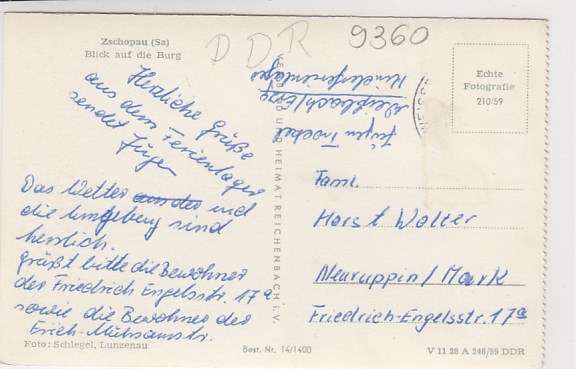 Zschopau (Sa)
Blick auf die Burg
DDR
9360
Echte
Fotografie
210/59
Herzliche Grüße
aus dem Ferienlager
sendet
Jürgen
Das Wetter und
die Umgebung sind
herrlich.
Grüßt bitte die Bewohner
der Friedrich Engelsstr. 17a
sowie die Bewohner der
Erich-Mühsamstr.
Jürgen
Kinderferienlager
Fam.
Horst Walter
Neuruppin/Mark
Friedrich-Engelsstr. 17a
UND HEIMAT REICHENBACH i. V.
Foto: Schlegel, Lunzenau
Best. Nr. 14/1400
V 11 28 A 248/59 DDR